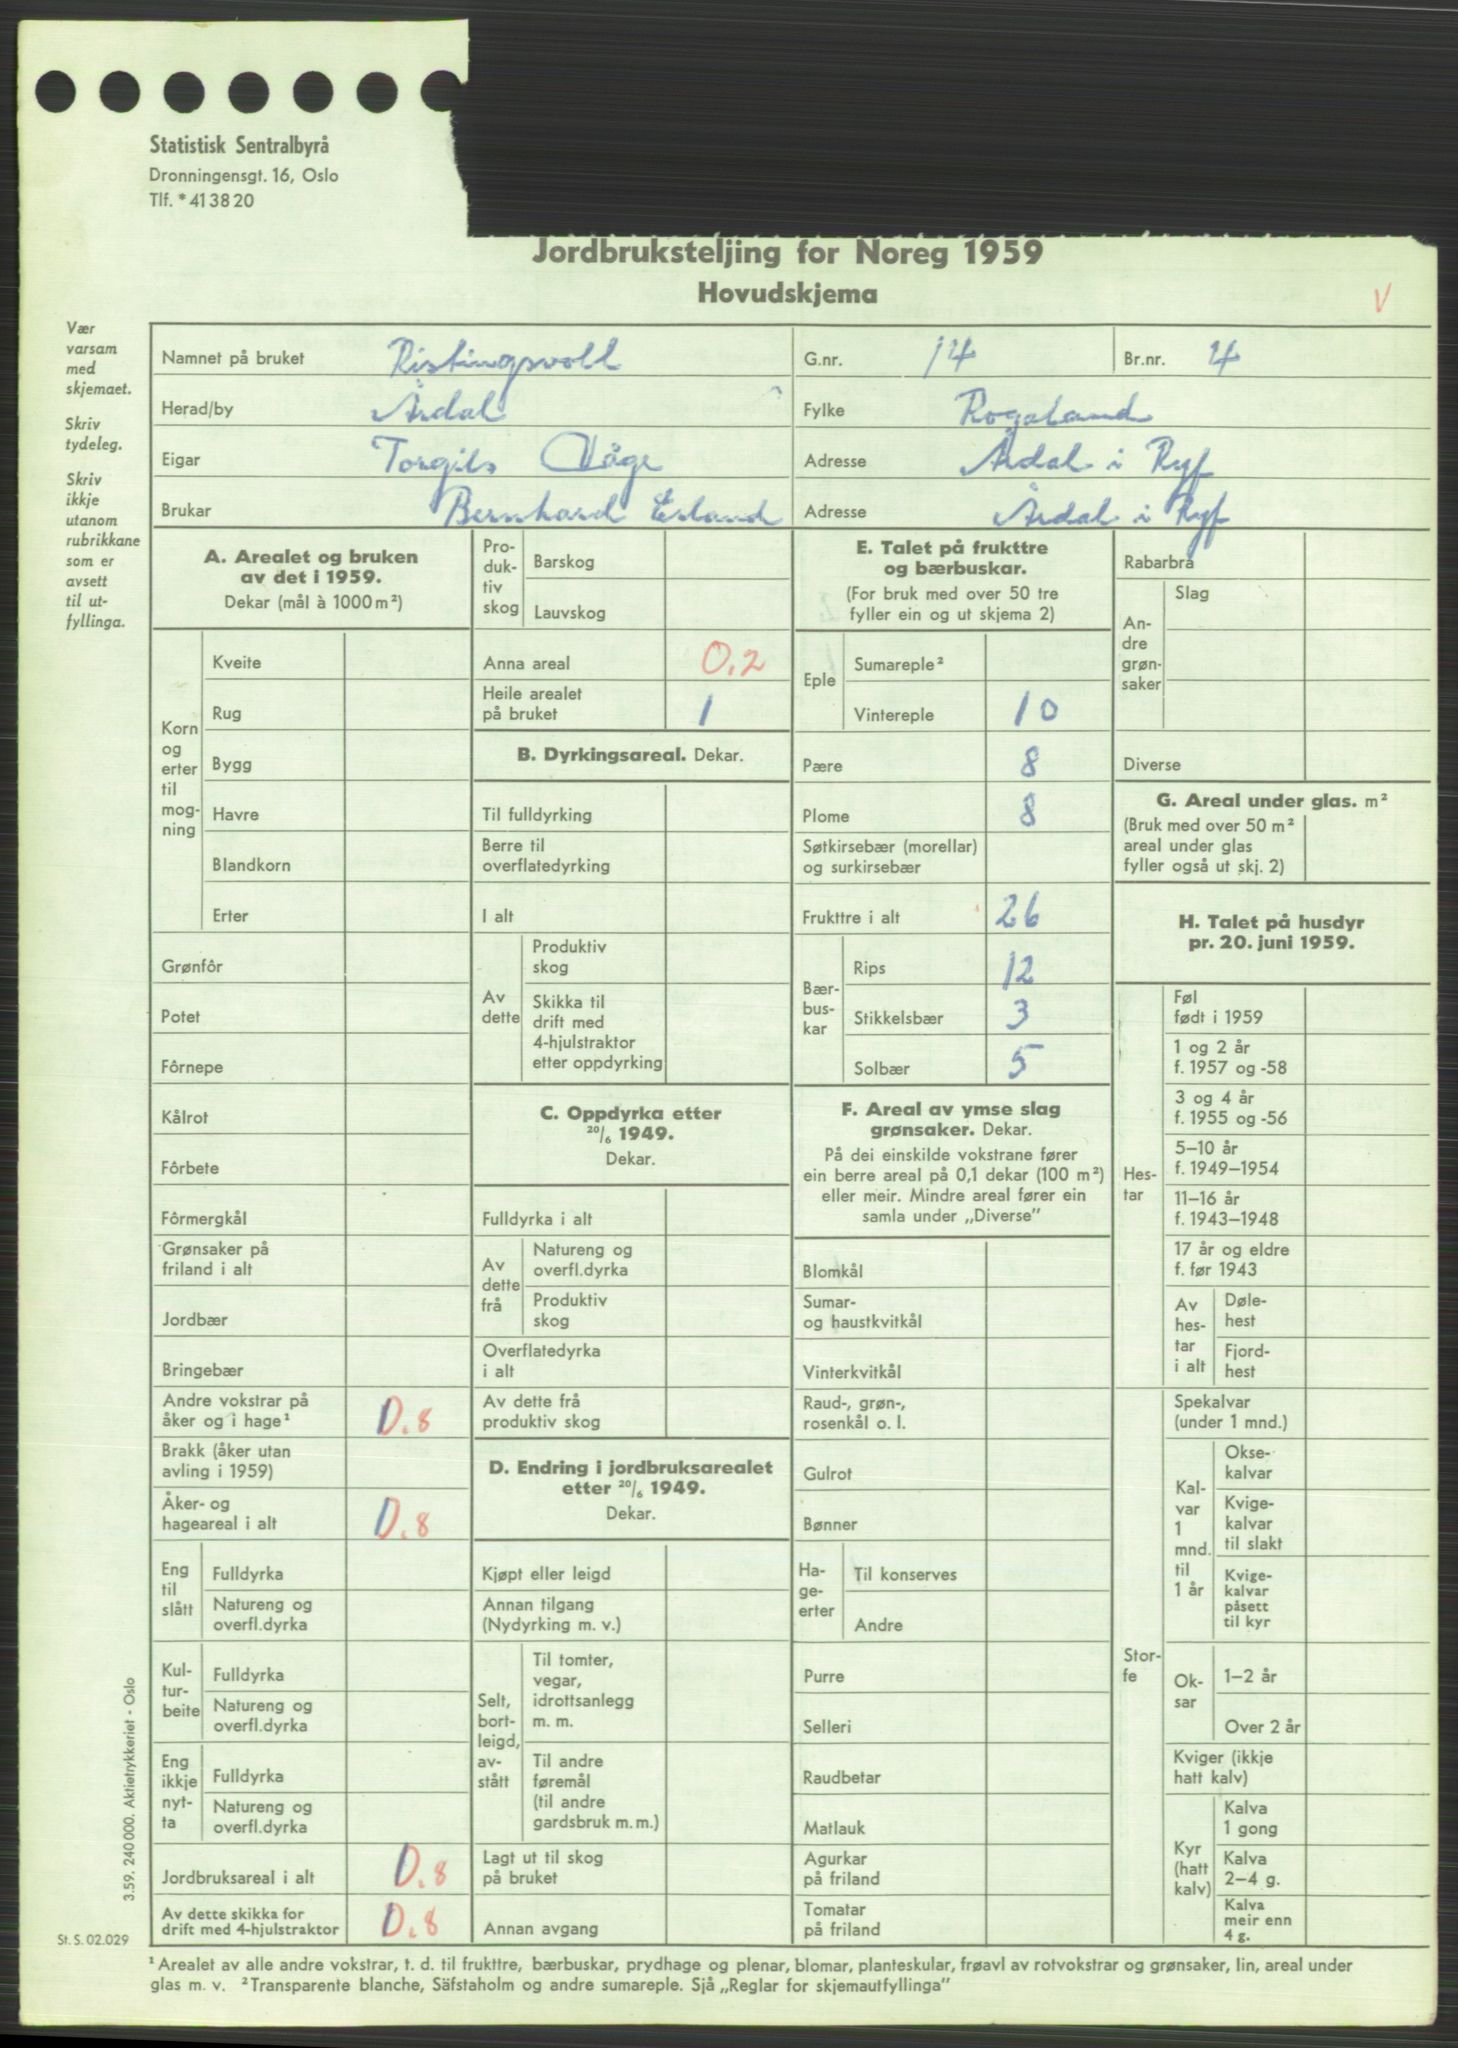 Statistisk Sentralbyrå
Dronningensgt. 16, Oslo
Tlf. * 41 38 20
Jordbruksteljing for Noreg 1959
Hovudskjema
V
Vær
varsam
med
skjemaet.
Skriv
tydeleg.
Skriv
ikkje
utanom
rubrikkane
som er
avsett
til ut-
fyllinga.
Namnet på bruket Ristingsvoll G.nr. 14 Br.nr. 4
Herad/by Årdal Fylke Rogaland
Eigar Torgils Våge Adresse Årdal i Ryf
Brukar Bernhard Erland Adresse Årdal i Ryf
A. Arealet og bruken
av det i 1959.
Dekar (mål à 1000 m²)
Korn
og
erter
til
mog-
ning
Kveite
Rug
Bygg
Havre
Blandkorn
Erter
Grønfôr
Potet
Fôrnepe
Kålrot
Fôrbete
Fôrmergkål
Grønsaker på
friland i alt
Jordbær
Bringebær
Andre vokstrar på
åker og i hage¹ 0.8
Brakk (åker utan
avling i 1959)
Åker- og
hageareal i alt 0.8
Eng
til
slått
Fulldyrka
Natureng og
overfl.dyrka
Kul-
tur-
beite
Fulldyrka
Natureng og
overfl.dyrka
Eng
ikkje
nyt-
ta
Fulldyrka
Natureng og
overfl.dyrka
Jordbruksareal i alt 0.8
Av dette skikka for
drift med 4-hjulstraktor 0.8
Pro-
duk-
tiv
skog
Barskog
Lauvskog
Anna areal 0.2
Heile arealet
på bruket 1
B. Dyrkingsareal. Dekar.
Til fulldyrking
Berre til
overflatedyrking
I alt
Av
dette
Produktiv
skog
Skikka til
drift med
4-hjulstraktor
etter oppdyrking
C. Oppdyrka etter
20/6 1949.
Dekar.
Fulldyrka i alt
Av
dette
frå
Natureng og
overfl.dyrka
Produktiv
skog
Overflatedyrka
i alt
Av dette frå
produktiv skog
D. Endring i jordbruksarealet
etter 20/6 1949.
Dekar.
Kjøpt eller leigd
Annan tilgang
(Nydyrking m. v.)
Selt,
bort-
leigd,
av-
stått
Til tomter,
vegar,
idrottsanlegg
m. m.
Til andre
føremål
(til andre
gardsbruk m. m.)
Lagt ut til skog
på bruket
Annan avgang
E. Talet på frukttre
og bærbuskar.
(For bruk med over 50 tre
fyller ein og ut skjema 2)
Eple
Sumareple²
Vintereple 10
Pære 8
Plome 8
Søtkirsebær (morellar)
og surkirsebær
Frukttre i alt 26
Bær-
bus-
kar
Rips 12
Stikkelsbær 3
Solbær 5
F. Areal av ymse slag
grønsaker. Dekar.
På dei einskilde vokstrane fører
ein berre areal på 0,1 dekar (100 m²)
eller meir. Mindre areal fører ein
samla under „Diverse”
Blomkål
Sumar-
og haustkvitkål
Vinterkvitkål
Raud-, grøn-,
rosenkål o. l.
Gulrot
Bønner
Ha-
ge-
erter
Til konserves
Andre
Purre
Selleri
Raudbetar
Matlauk
Agurkar
på friland
Tomatar
på friland
Rabarbra
An-
dre
grøn-
saker
Slag
Diverse
G. Areal under glas. m²
(Bruk med over 50 m²
areal under glas
fyller også ut skj. 2)
H. Talet på husdyr
pr. 20. juni 1959.
Hes-
tar
Føl
født i 1959
1 og 2 år
f. 1957 og -58
3 og 4 år
f. 1955 og -56
5–10 år
f. 1949–1954
11–16 år
f. 1943–1948
17 år og eldre
f. før 1943
Av
hes-
tar
i alt
Døle-
hest
Fjord-
hest
Stor-
fe
Spekalvar
(under 1 mnd.)
Kal-
var
1
mnd.
til
1 år
Okse-
kalvar
Kvige-
kalvar
til slakt
Kvige-
kalvar
påsett
til kyr
Ok-
sar
1–2 år
Over 2 år
Kviger (ikkje
hatt kalv)
Kyr
(hatt
kalv)
Kalva
1 gong
Kalva
2–4 g.
Kalva
meir enn
4 g.
3.59. 240 000. Aktietrykkeriet - Oslo
St. S. 02.029
¹ Arealet av alle andre vokstrar, t. d. til frukttre, bærbuskar, prydhage og plenar, blomar, planteskular, frøavl av rotvokstrar og grønsaker, lin, areal under
glas m. v. ² Transparente blanche, Säfstaholm og andre sumareple. Sjå „Reglar for skjemautfyllinga”